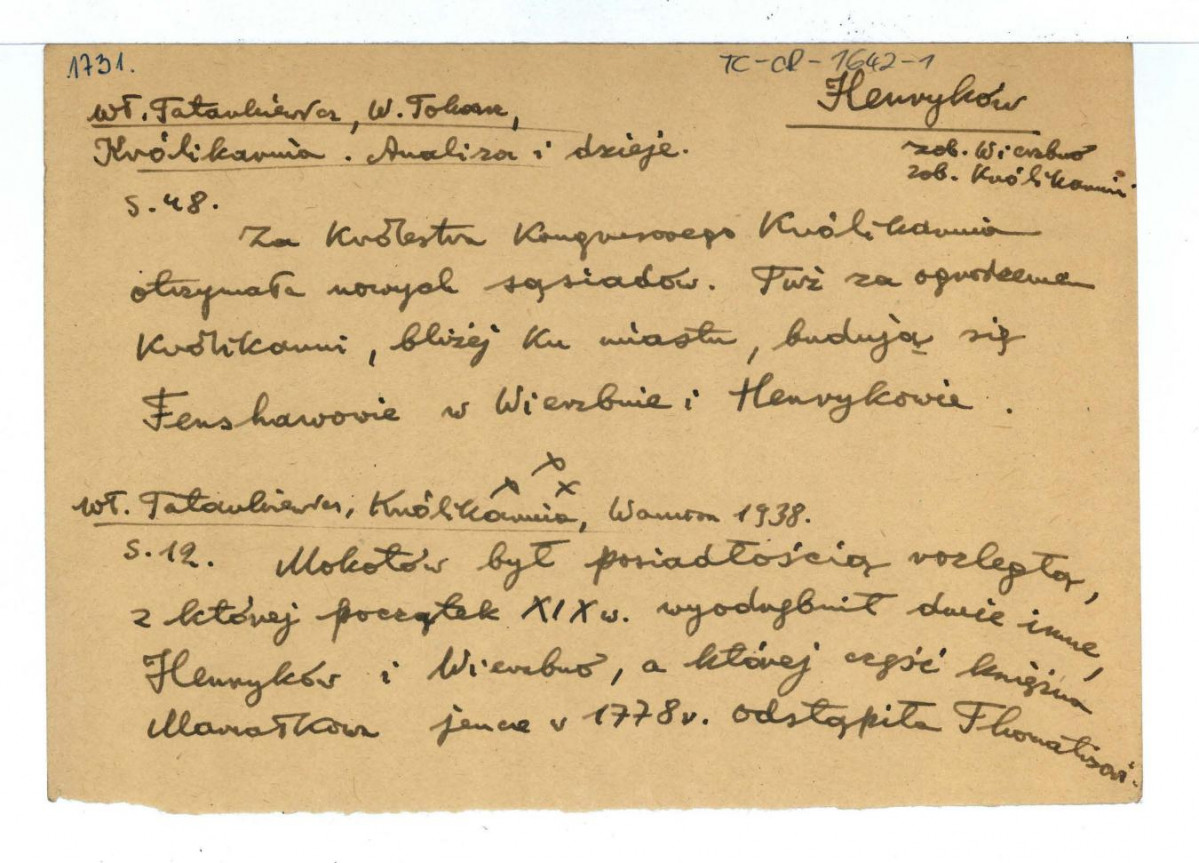 1731.
TC-cd-1642-1
Henryków
Wł. Tatarkiewicz, W. Tokarz,
Królikarnia. Analiza i dzieje.
zob. Wierzbno
zob. Królikarnia
s. 48.
Za Królestwa Kongresowego Królikarnia
otrzymała nowych sąsiadów. Tuż za ogrodzeniem
Królikarni, bliżej ku miastu, budują się
Fenshawowie w Wierzbnie i Henrykowie.
x x x
Wł. Tatarkiewicz, Królikarnia, Warszawa 1938.
s. 12. Mokotów był posiadłością rozległą,
z której początek XIX w. wyodrębnił dwie inne,
Henryków i Wierzbno, a której część księżna
Marszałkowa jeszcze w 1778 r. odstąpiła Thomatisowi.